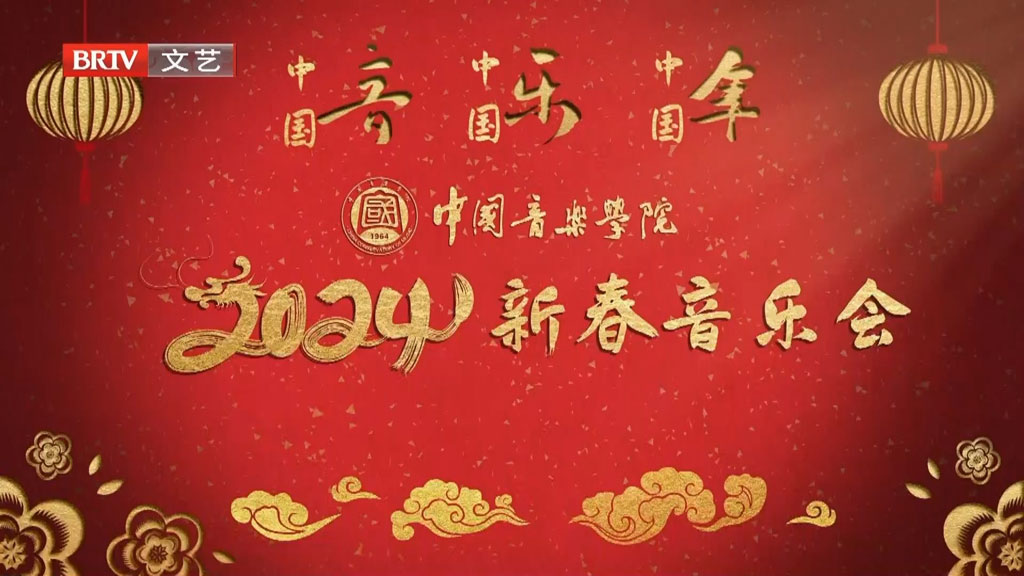 BRTV 文艺
中国音 中国乐 中国年
1964
中国音樂學院
2024新春音乐会